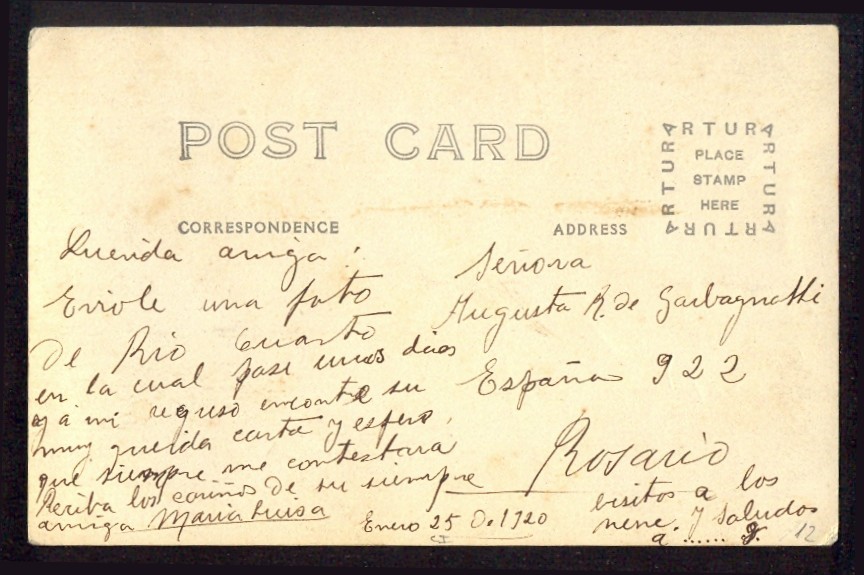 POST CARD
ARTURA
ARTURA
ARTURA
ARTURA
PLACE
STAMP
HERE
CORRESPONDENCE
ADDRESS
Querida amiga!
Eniole una foto
de Rio Cuarto
en la cual pase unos dias
y á mi reguso encontre su
muy querida carta y espero
que siempre me contestara
Reciba los cariños de su siempre
amiga Maria Luisa
Enero 25 D. 1920
Señora
Augusta R. de Garbagnatti
España 922
Rosario
besitos a los
nene. y Saludos
a ......
12